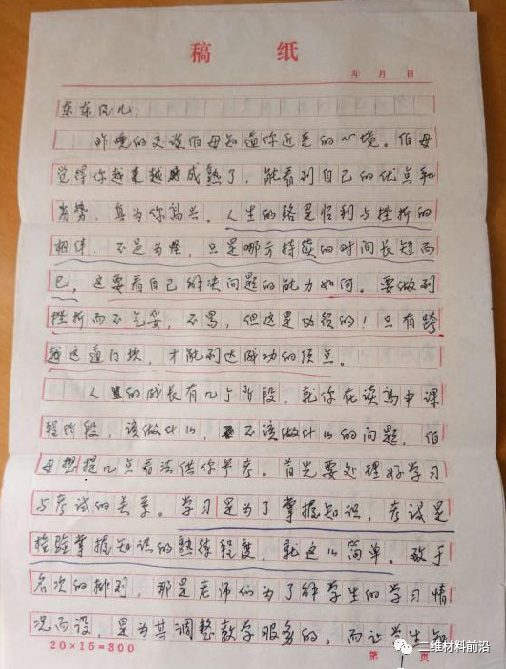 稿 纸
年 月 日
东东
昨晚的交谈伯母知道你近来的心境。伯母
觉得你越来越成熟了，能看到自己的优点和
劣势，真为你高兴。人生的路是胜利与挫折的
相伴，不是为怪，只是哪方持续的时间长短而
已，这要看自己解决问题的能力如何。要做到
挫折而不气妥，不易，但这是必须的！只有跨
越这道门坎，才能到达成功的顶点。
人的成长有几个阶段，就你在读高中课
程阶段，该做什么，不该做什么的问题，伯
母想提几点看法供你参考。首先要处理好学习
与考试的关系。学习是为了掌握知识，考试是
检验掌握知识的熟练程度，就这么简单。致于
名次的排列，那是老师们为了解学生的学习情
况而设，是为其调整教学服务的，而让学生知
20×15=300
第 页
三维材料前沿